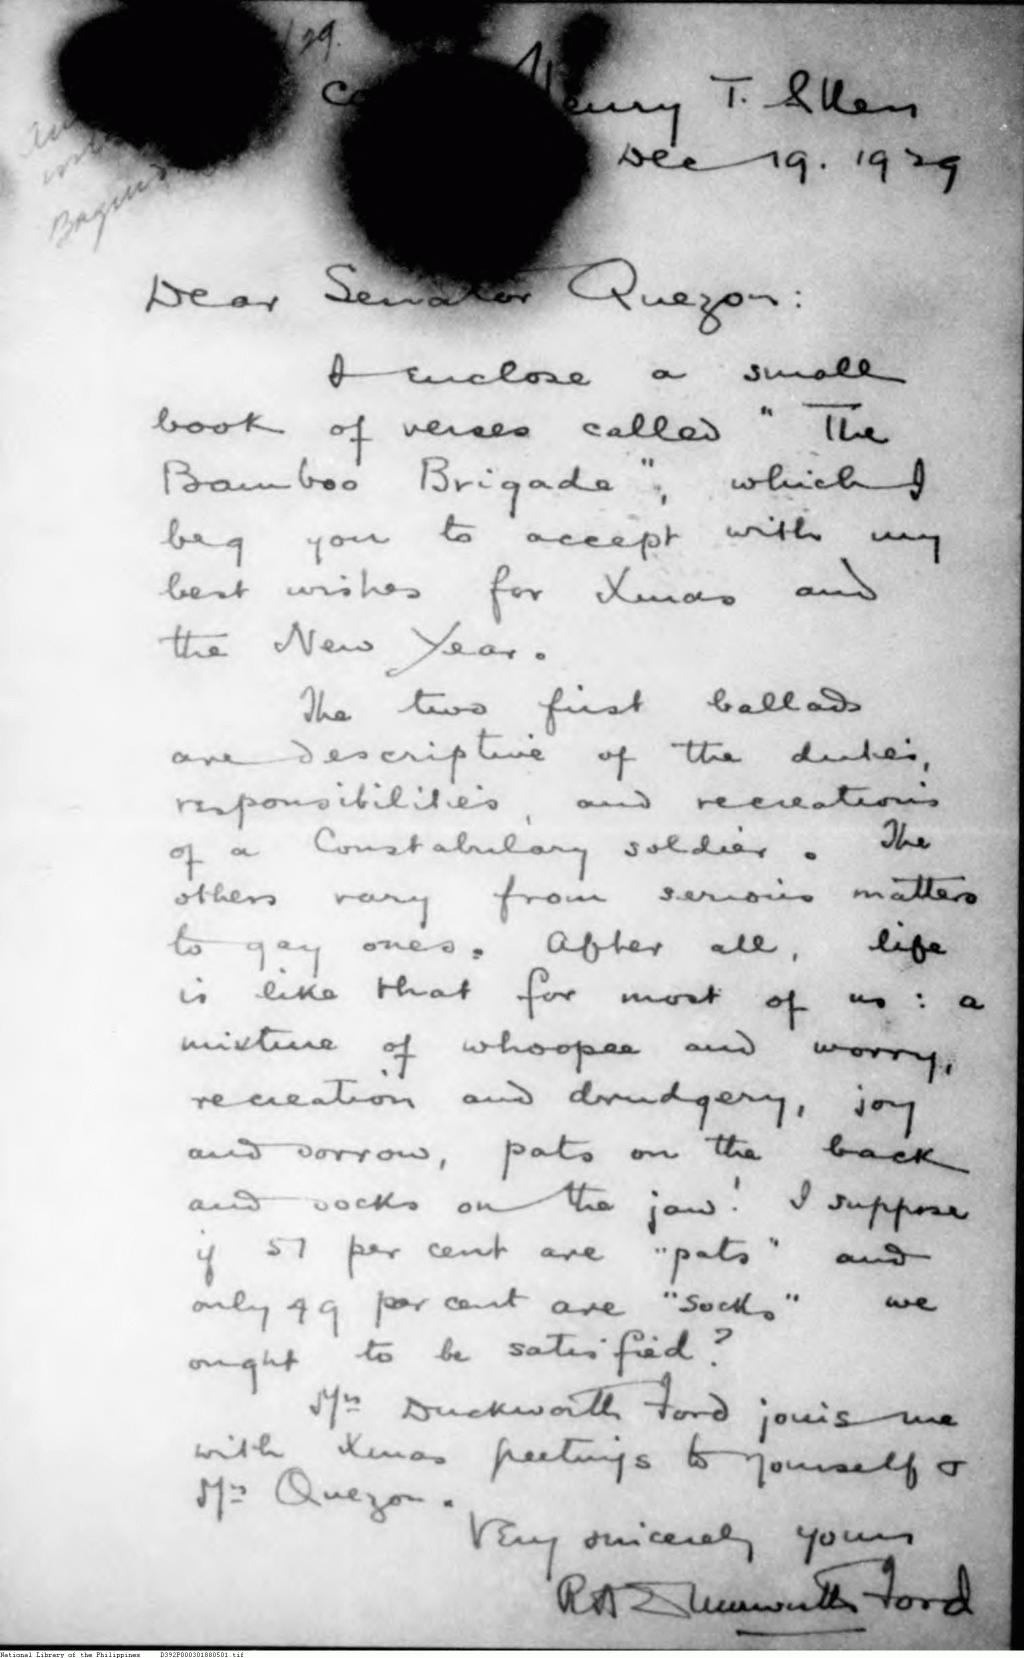 /29.
Henry T. Allen
Dec 19. 1929
Dear Senator Quezon:
I enclose a small
book of verses called "The
Bamboo Brigade", which I
beg you to accept with my
best wishes for Xmas and
the New Year.
The two first ballads
are descriptive of the duties,
responsibilities, and recreations
of a Constabulary soldier. The
others vary from serious matters
to gay ones. After all, life
is like that for most of us: a
mixture of whoopee and worry,
recreation and drudgery, joy
and sorrow, pats on the back
and socks on the jaw! I suppose
if 51 per cent are "pats" and
only 49 per cent are "socks" we
ought to be satisfied?
Mrs Duckworth Ford joins me
with Xmas greetings to yourself &
Mrs Quezon.
Very sincerely yours
R A Duckworth Ford
National Library of the Philippines D392P000301880501.tif